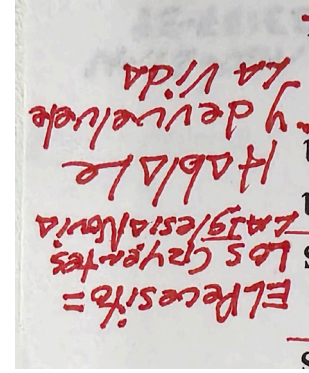 EL Pecesito =
Los Creyentes
La Iglesia/Novia
HablaLe
y devuelvele
La Vida